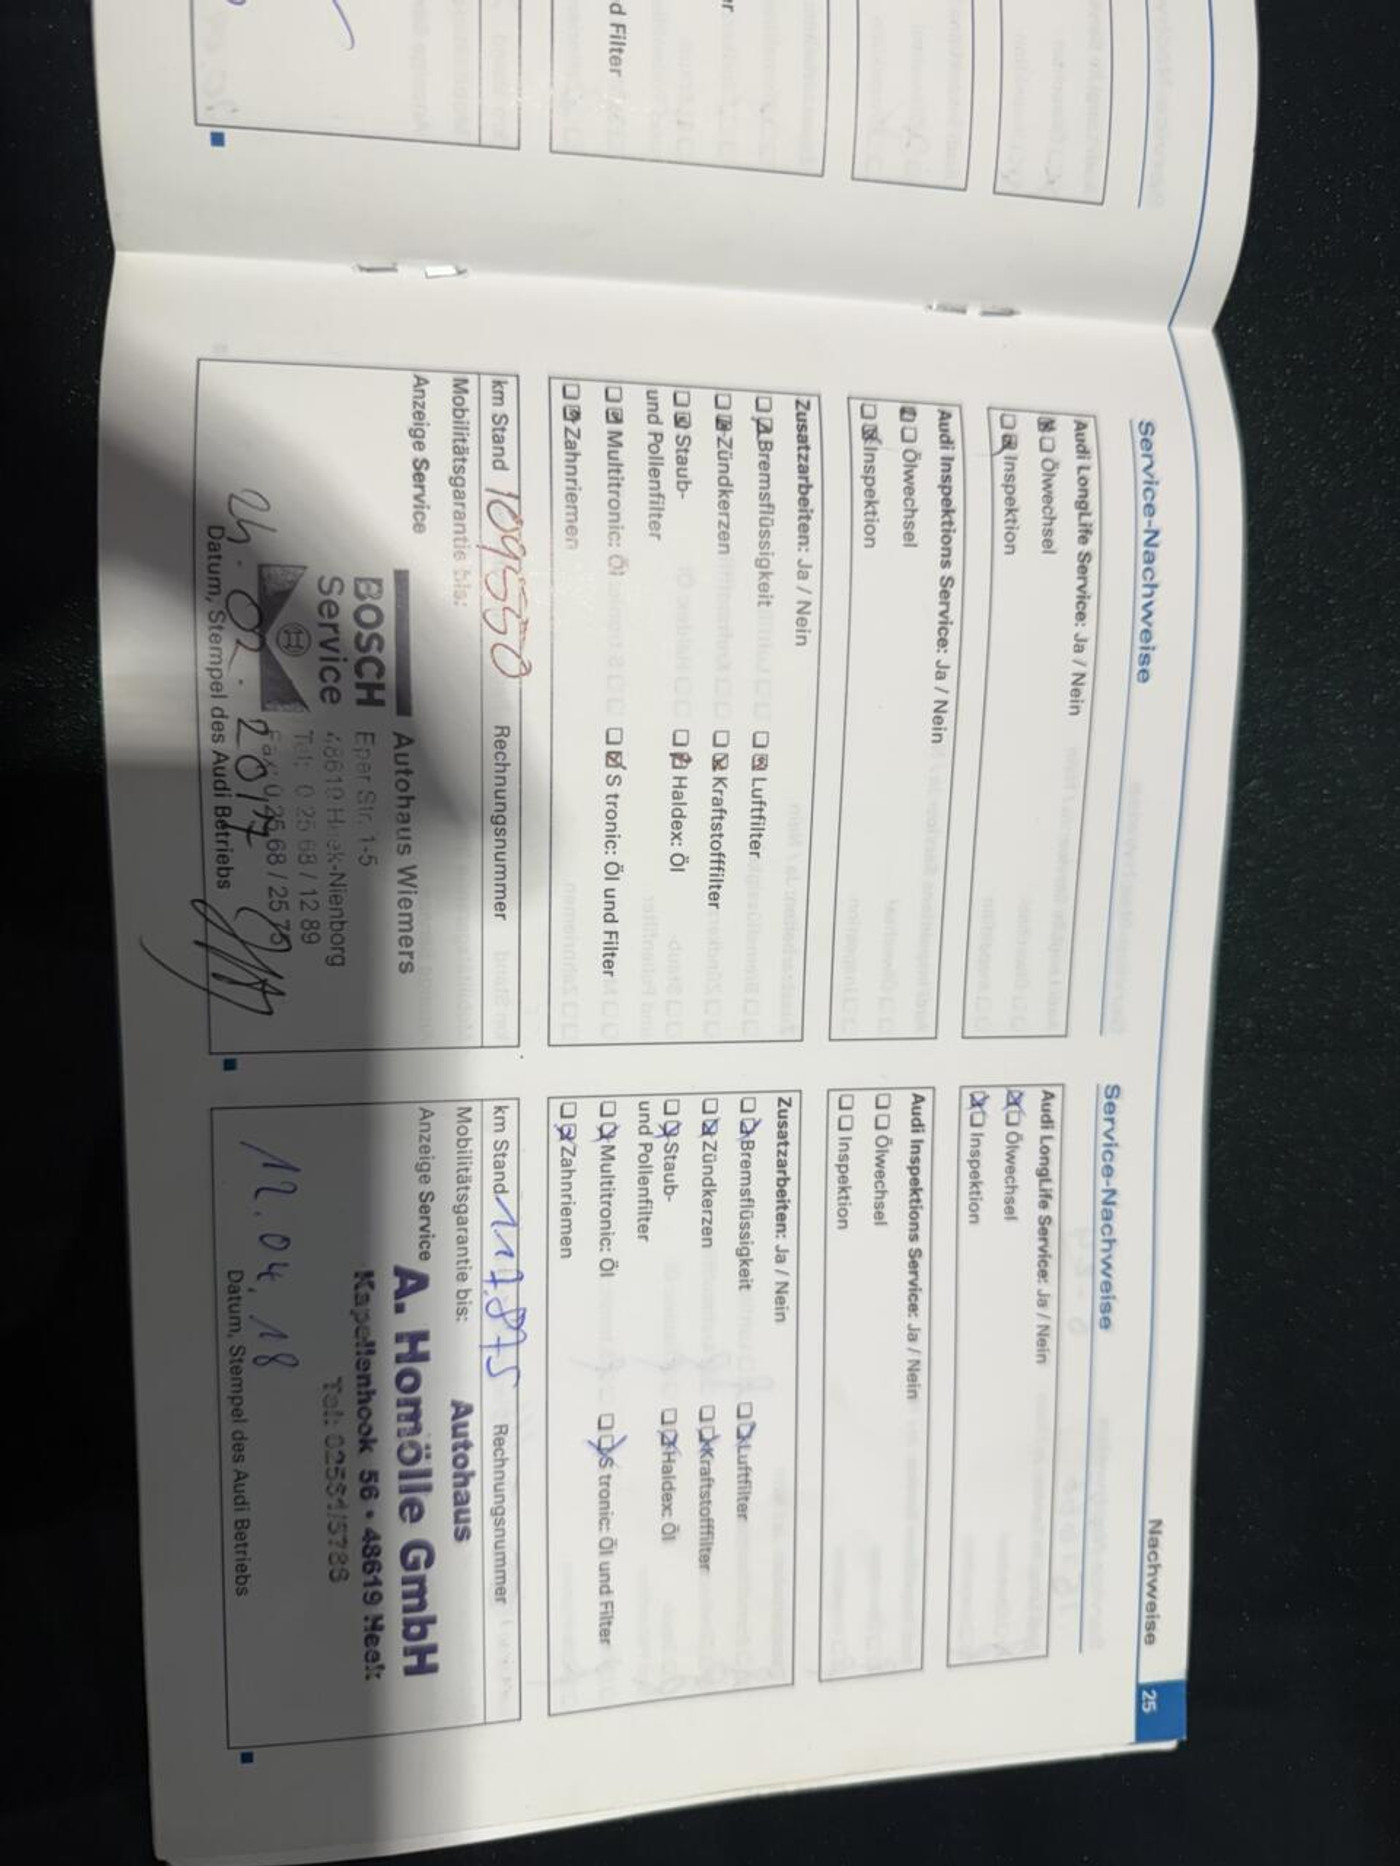 d Filter
Nachweise 25
Service-Nachweise
Audi LongLife Service: Ja / Nein
Ölwechsel
Inspektion
Audi Inspektions Service: Ja / Nein
Ölwechsel
Inspektion
Zusatzarbeiten: Ja / Nein
Bremsflüssigkeit Luftfilter
Zündkerzen Kraftstofffilter
Staub- Haldex: Öl
und Pollenfilter
Multitronic: Öl S tronic: Öl und Filter
Zahnriemen
km Stand 109550 Rechnungsnummer
Mobilitätsgarantie bis:
Anzeige Service
Autohaus Wiemers
BOSCH Eper Str. 1-5
Service 48619 Heek-Nienborg
Tel: 0 25 68 / 12 89
Fax: 0 25 68 / 25 75
24.02.2017
Datum, Stempel des Audi Betriebs
Service-Nachweise
Audi LongLife Service: Ja / Nein
Ölwechsel
Inspektion
Audi Inspektions Service: Ja / Nein
Ölwechsel
Inspektion
Zusatzarbeiten: Ja / Nein
Bremsflüssigkeit Luftfilter
Zündkerzen Kraftstofffilter
Staub- Haldex: Öl
und Pollenfilter
Multitronic: Öl S tronic: Öl und Filter
Zahnriemen
km Stand 117.875 Rechnungsnummer
Mobilitätsgarantie bis:
Anzeige Service
Autohaus
A. Homölle GmbH
Kapellenhook 56 • 48619 Heek
12.04.18
Datum, Stempel des Audi Betriebs